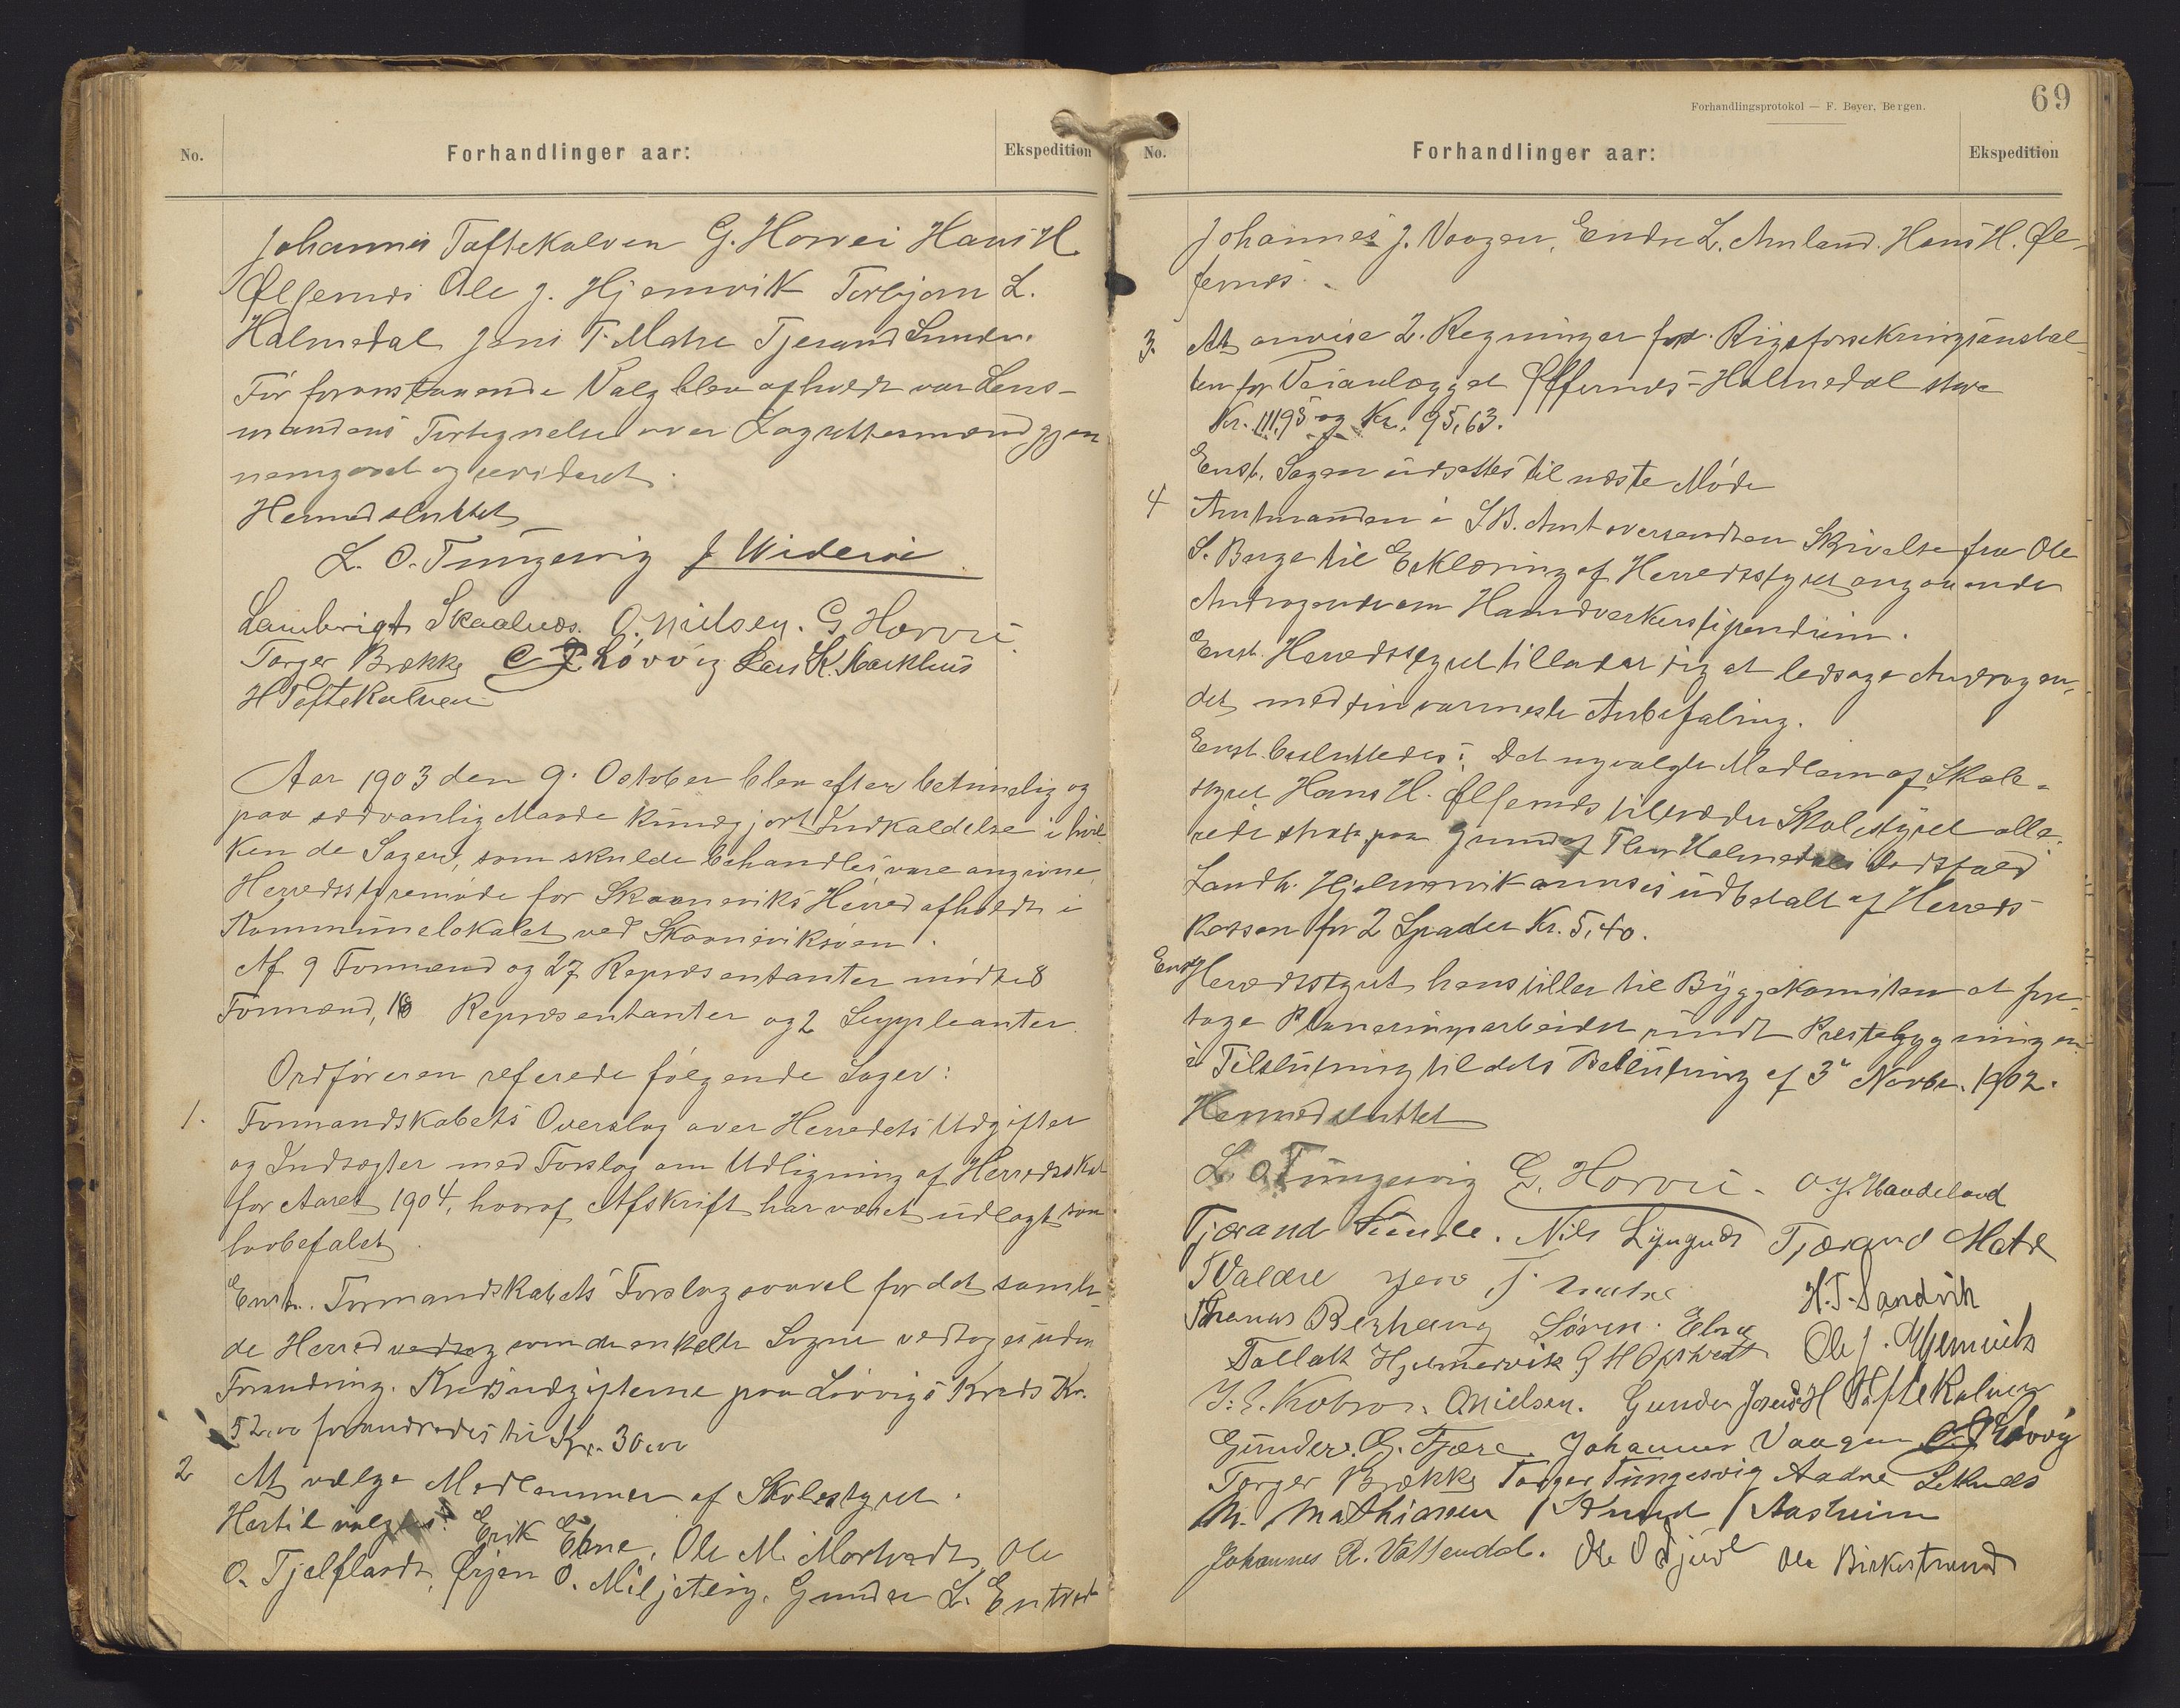 No.
Forhandlinger aar:
Ekspedition
Johannes Taftekalven G. Horvei Hans H.
Ølfernes Ole J. Hjemvik Torbjørn L.
Halmedal Jens T. Matre Tjerand Sunde.
Før foranstaaende Valg blev afholdt var Lens-
mandens Fortegnelse over Lagrettesmænd gjen
nemgaaet og revideret.
Hermed sluttet
L. O. Tungesvig J Widerøe
Lambrigt Skaalnes. O. Nielsen. G Horvei
Torger Brekke Løvvig Lars K. Markhus
H Taftekalven
Aar 1903 den 9. October blev efter betimelig og
paa sædvanlig Maade kundgjort Indkaldelse i hvil
ken de Sager, som skulde behandles, vare angivne
Herredsstyremøde for Skaaneviks Herred afholdt i
Kommunelokalet ved Skaaneviksøen.
Af 9 Formænd og 27 Repræsentanter mødte 8
Formænd, 18 Repræsentanter og 2 Suppleanter.
Ordføreren referede følgende Sager:
1. Formandskabets Overslag over Herredets Udgifter
og Indtægter med Forslag om Udligning af Herredsskat
for Aaret 1904, hvoraf Afskrift har været udlagt som
lovbefalet.
Enst. Formandskabets Forslag saavel for det samle-
de Herred vedtog som de enkelte Sogne vedtoges uden
Forandring. Kredsudgifterne paa Løvvigs Kreds Kr.
52,00 forandredes til Kr. 30,00
2 At vælge Medlemmer af Skolestyret.
Hertil valgtes: Erik Ebne, Ole M. Mortvedt, Ole
O. Tjelflaadt, Ørjan O. Miljeteig, Gunder L. Entvedt
Forhandlingsprotokol — F. Beyer, Bergen.
69
No.
Forhandlinger aar:
Ekspedition
Johannes J. Vaagen, Endre L. Amland. Hans H. Øl-
fernes.
3. At anvise 2. Regninger fra Rigsforsekringsanstal-
ten for Veianlægget Ølfernes-Halmedal store
Kr. 111,95 og Kr. 95,63.
Enst. Sagen udsattes til næste Møde
4 Amtmanden i S.B. Amt oversendte en Skrivelse fra Ole
S. Berge til Erklæring af Herredsstyret angaaende
Andragende om Haandverkerstipendium.
Enst. Herredsstyret tillader sig at ledsage Andragen-
det med sin varmeste Anbefaling.
Enst. besluttedes: Det nyvalgte Medlem af Skole-
styret Hans H. Ølfernes tiltræder Skolestyret alle-
rede strax paa Grund af Thor Halmedals Dødsfald
Landh. Hjelmervik anvises udbetalt af Herreds
kassen for 2 Spader Kr. 5,40.
Enst Herredsstyret henstiller til Byggekomiteen at fore-
tage Planeringsarbeidet rundt Prestebygningen
i Tilslutning til dets Beslutning af 3. Novbr. 1902.
Hermed sluttet
L. O Tungesvig G. Horvei. O. J. Haaveland
Tjærand Sunde. Nils Lyngnes Tjærand Matre
T Valdre Jens T. Matre H. T. Sandvik
Thomas Berhaug Søren Ebne Ole J. Hjemvik
Tallak Hjelmervik G H Opskredt
Nielsen. Gunder H Taftekalven
Gunder. G. Fjære. Johannes Vaagen Løvvig
Torger Brekke Torger Tungesvig Aadne Leknes
M. Mathiasen Knud Aasheim
Johannes R. Vattendal. Ole O Djuvl Ole Birkestrand